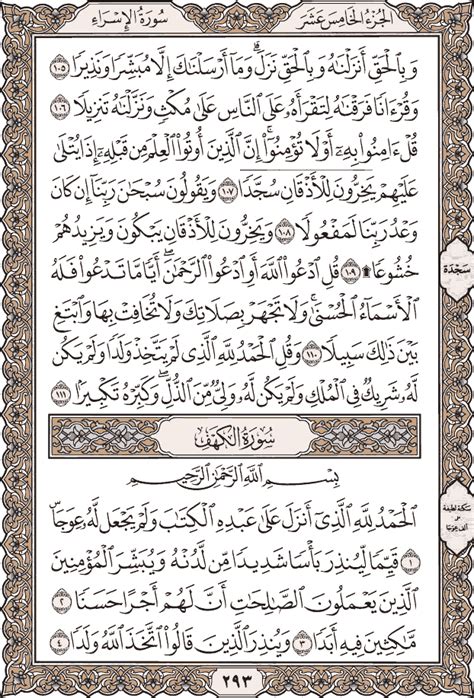 الجزء الخامس عشر
سورة الإسراء
وَبِٱلْحَقِّ أَنزَلْنَٰهُ وَبِٱلْحَقِّ نَزَلَ ۗ وَمَآ أَرْسَلْنَٰكَ إِلَّا مُبَشِّرًا وَنَذِيرًا ١٠٥
وَقُرْءَانًا فَرَقْنَٰهُ لِتَقْرَأَهُۥ عَلَى ٱلنَّاسِ عَلَىٰ مُكْثٍ وَنَزَّلْنَٰهُ تَنزِيلًا ١٠٦
قُلْ ءَامِنُوا۟ بِهِۦٓ أَوْ لَا تُؤْمِنُوٓا۟ ۚ إِنَّ ٱلَّذِينَ أُوتُوا۟ ٱلْعِلْمَ مِن قَبْلِهِۦٓ إِذَا يُتْلَىٰ
عَلَيْهِمْ يَخِرُّونَ لِلْأَذْقَانِ سُجَّدًا ١٠٧ وَيَقُولُونَ سُبْحَٰنَ رَبِّنَآ إِن كَانَ
وَعْدُ رَبِّنَا لَمَفْعُولًا ١٠٨ وَيَخِرُّونَ لِلْأَذْقَانِ يَبْكُونَ وَيَزِيدُهُمْ
خُشُوعًا ۩ ١٠٩ قُلِ ٱدْعُوا۟ ٱللَّهَ أَوِ ٱدْعُوا۟ ٱلرَّحْمَٰنَ ۖ أَيًّا مَّا تَدْعُوا۟ فَلَهُ
ٱلْأَسْمَآءُ ٱلْحُسْنَىٰ ۚ وَلَا تَجْهَرْ بِصَلَاتِكَ وَلَا تُخَافِتْ بِهَا وَٱبْتَغِ
بَيْنَ ذَٰلِكَ سَبِيلًا ١١٠ وَقُلِ ٱلْحَمْدُ لِلَّهِ ٱلَّذِى لَمْ يَتَّخِذْ وَلَدًا وَلَمْ يَكُن
لَّهُۥ شَرِيكٌ فِى ٱلْمُلْكِ وَلَمْ يَكُن لَّهُۥ وَلِىٌّ مِّنَ ٱلذُّلِّ ۖ وَكَبِّرْهُ تَكْبِيرًۢا ١١١
سجدة
سورة الكهف
بِسْمِ ٱللَّهِ ٱلرَّحْمَٰنِ ٱلرَّحِيمِ
ٱلْحَمْدُ لِلَّهِ ٱلَّذِىٓ أَنزَلَ عَلَىٰ عَبْدِهِ ٱلْكِتَٰبَ وَلَمْ يَجْعَل لَّهُۥ عِوَجَا ۜ
١ قَيِّمًا لِّيُنذِرَ بَأْسًا شَدِيدًا مِّن لَّدُنْهُ وَيُبَشِّرَ ٱلْمُؤْمِنِينَ
ٱلَّذِينَ يَعْمَلُونَ ٱلصَّٰلِحَٰتِ أَنَّ لَهُمْ أَجْرًا حَسَنًا ٢
مَّٰكِثِينَ فِيهِ أَبَدًا ٣ وَيُنذِرَ ٱلَّذِينَ قَالُوا۟ ٱتَّخَذَ ٱللَّهُ وَلَدًا ٤
سكتة لطيفة
على
٢٩٣